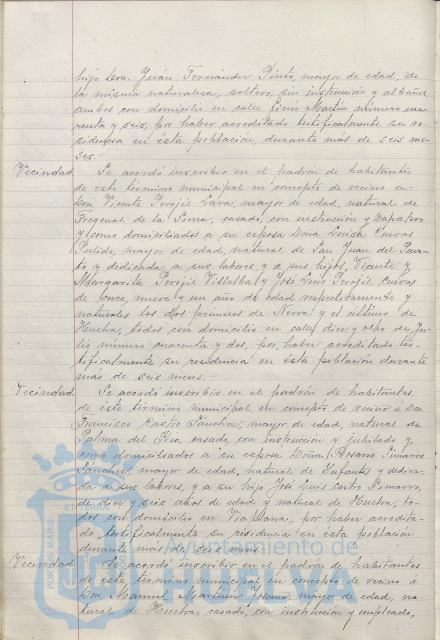 hijo Don Juan Fernández Pinto, mayor de edad, de
la misma naturaleza, soltero, sin instrucción y albañil
ambos con domicilio en calle Ginés Martín número cua-
renta y seis, por haber acreditado testificalmente su re-
sidencia en esta población, durante más de seis me-
ses.-
Vecindad. Se acordó inscribir en el padrón de habitantes
de este término municipal en concepto de vecino a
Don Vicente Perojil Lara, mayor de edad, natural de
Fregenal de la Sierra, casado, con instrucción y zapatero
y como domiciliados a su esposa Doña Luisa Cuevas
Pulido, mayor de edad, natural de San Juan del Puer-
to y dedicada a sus labores y a sus hijos, Vicente y
Margarita Perojil Villalba y José Luis Perojil Cuevas
de once, nueve y un año de edad respectivamente y
naturales los dos primeros de Nerva y el último de
Huelva, todos con domicilio en calle diez y ocho de Ju-
lio número cuarenta y dos, por haber acreditado tes-
tificalmente su residencia en esta población durante
más de seis meses.
Vecindad. Se acordó inscribir en el padrón de habitantes
de este término municipal en concepto de vecino a Don
Francisco Castro Sánchez, mayor de edad, natural de
Palma del Río, casado, con instrucción y jubilado y
como domiciliados a su esposa Doña Rosario Pizarro
Sánchez, mayor de edad, natural de y dedica-
da a sus labores, y a su hijo José Luis Castro Pizarro,
de diez y seis años de edad y natural de Huelva, to-
dos con domicilio en Viaplana, por haber acredita-
do testificalmente su residencia en esta población
durante más de seis meses.
Vecindad. Se acordó inscribir en el padrón de habitantes
de este término municipal en concepto de vecino a
Don Manuel Martín, mayor de edad, na-
tural de Huelva, casado, con instrucción y empleado,
PORTUS MARIS
ET TERRAE
Ayuntamiento de